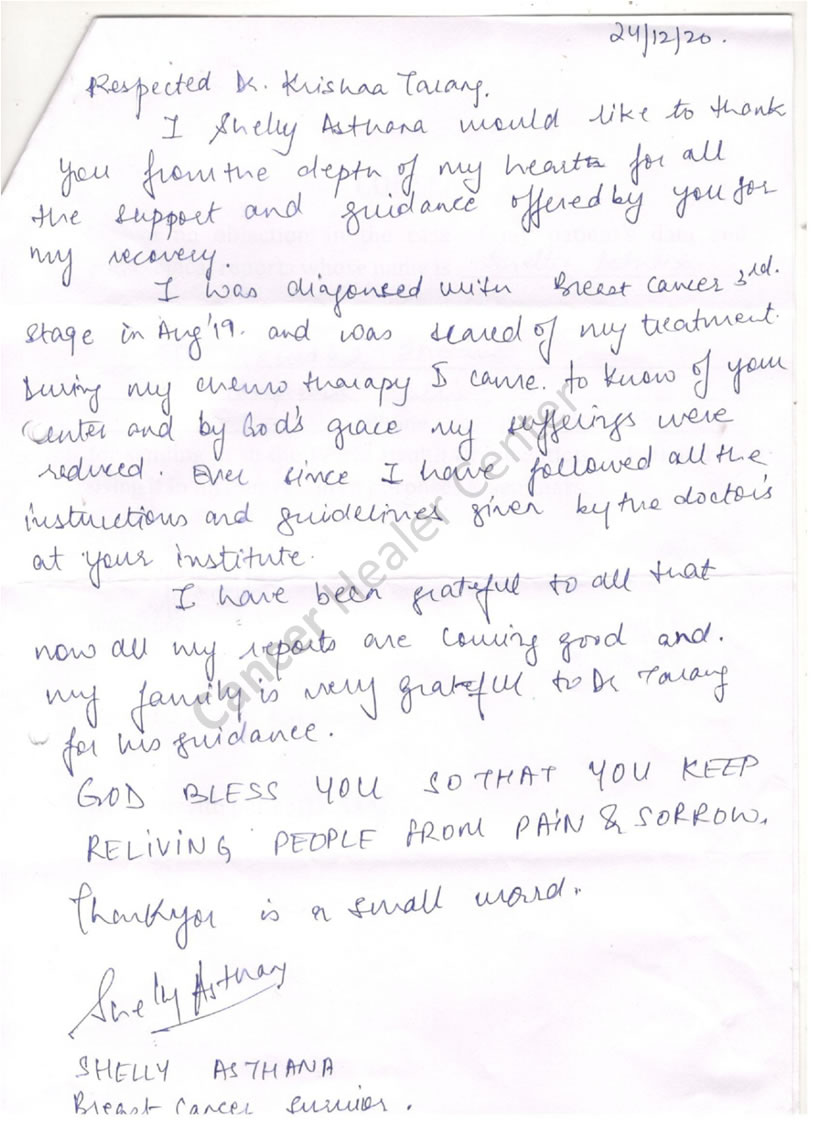 24/12/20.
Respected Dr. Krishaa Tarang.
I Shelly Asthana would like to thank
you from the depth of my heart for all
the support and guidance offered by you for
my recovery.
I was diagonsed with Breast Cancer 3rd.
stage in Aug'19. and was scared of my treatment.
During my chemo therapy I came. to know of your
Center and by God's grace my sufferings were
reduced. Ever since I have followed all the
instructions and guidelines given by the doctors
at your institute.
I have been grateful to all that
now all my reports are coming good and.
my family is very grateful to Dr Tarang
for his guidance.
GOD BLESS YOU SO THAT YOU KEEP
RELIVING PEOPLE FROM PAIN & SORROW.
Thankyou is a small word.
Shelly Asthana
SHELLY ASTHANA
Breast Cancer survivor.
Cancer Healer Center